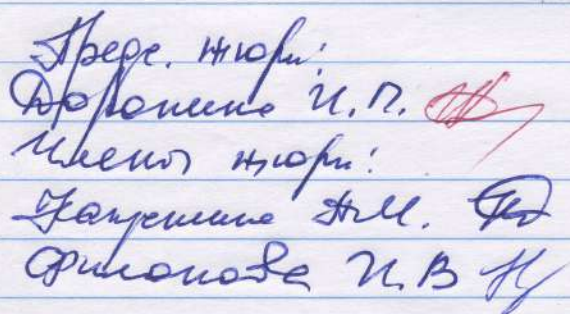 Предс. жюри:
Доронина И.П.
Члены жюри:
А.М.
Филонова И.В